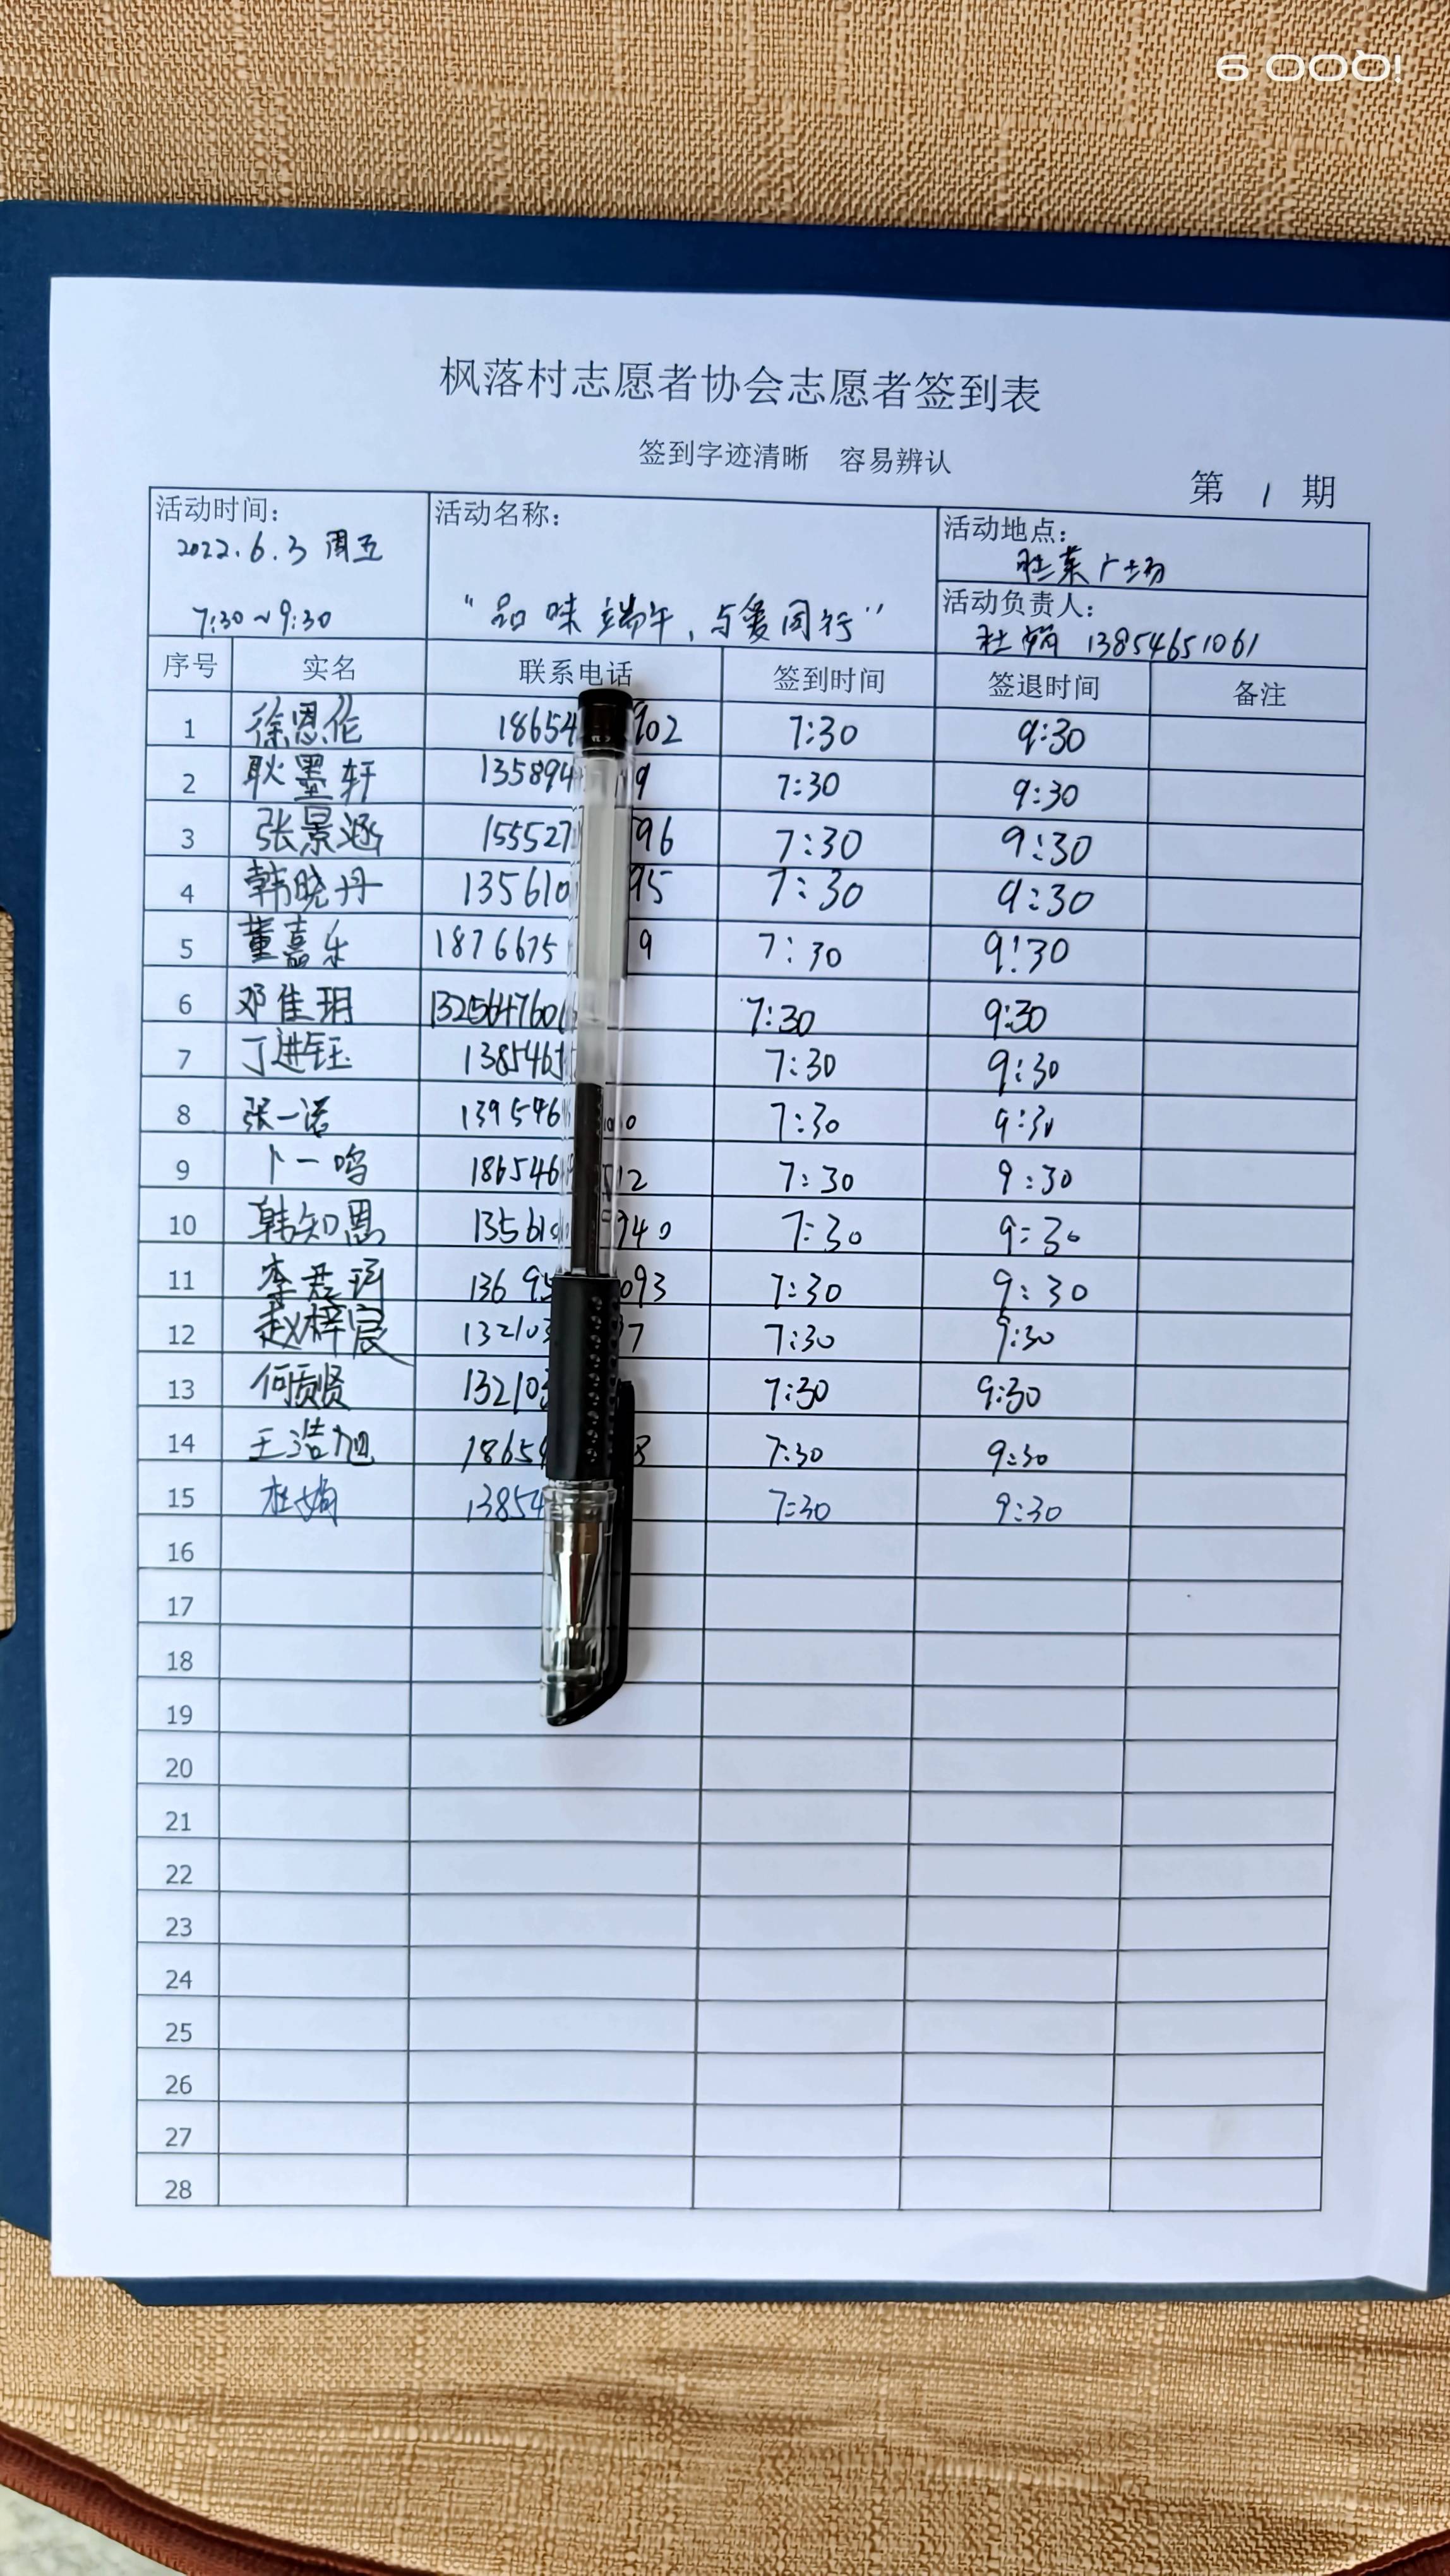 iQOO 9
枫落村志愿者协会志愿者签到表
签到字迹清晰 容易辨认
第 1 期
活动时间：
2022.6.3 周五
7:30~9:30
活动名称：
“品味端午，与爱同行”
活动地点：
胜莱广场
活动负责人：
杜娟 13854651061
序号 实名 联系电话 签到时间 签退时间 备注
1 徐恩伦 18654 902 7:30 9:30
2 耿墨轩 135894 9 7:30 9:30
3 张景涵 155527 96 7:30 9:30
4 韩晓丹 135610 95 7:30 9:30
5 董嘉乐 1876675 9 7:30 9:30
6 邓佳玥 1325647606 7:30 9:30
7 丁进钰 138546 7:30 9:30
8 张一诺 139546 0 7:30 9:30
9 卜一鸣 186546 12 7:30 9:30
10 韩知恩 13561 940 7:30 9:30
11 李君 13695 093 7:30 9:30
12 赵梓宸 132103 7 7:30 9:30
13 何贡贤 132103 7:30 9:30
14 王浩旭 1865 8 7:30 9:30
15 杜娟 13854 7:30 9:30
16
17
18
19
20
21
22
23
24
25
26
27
28